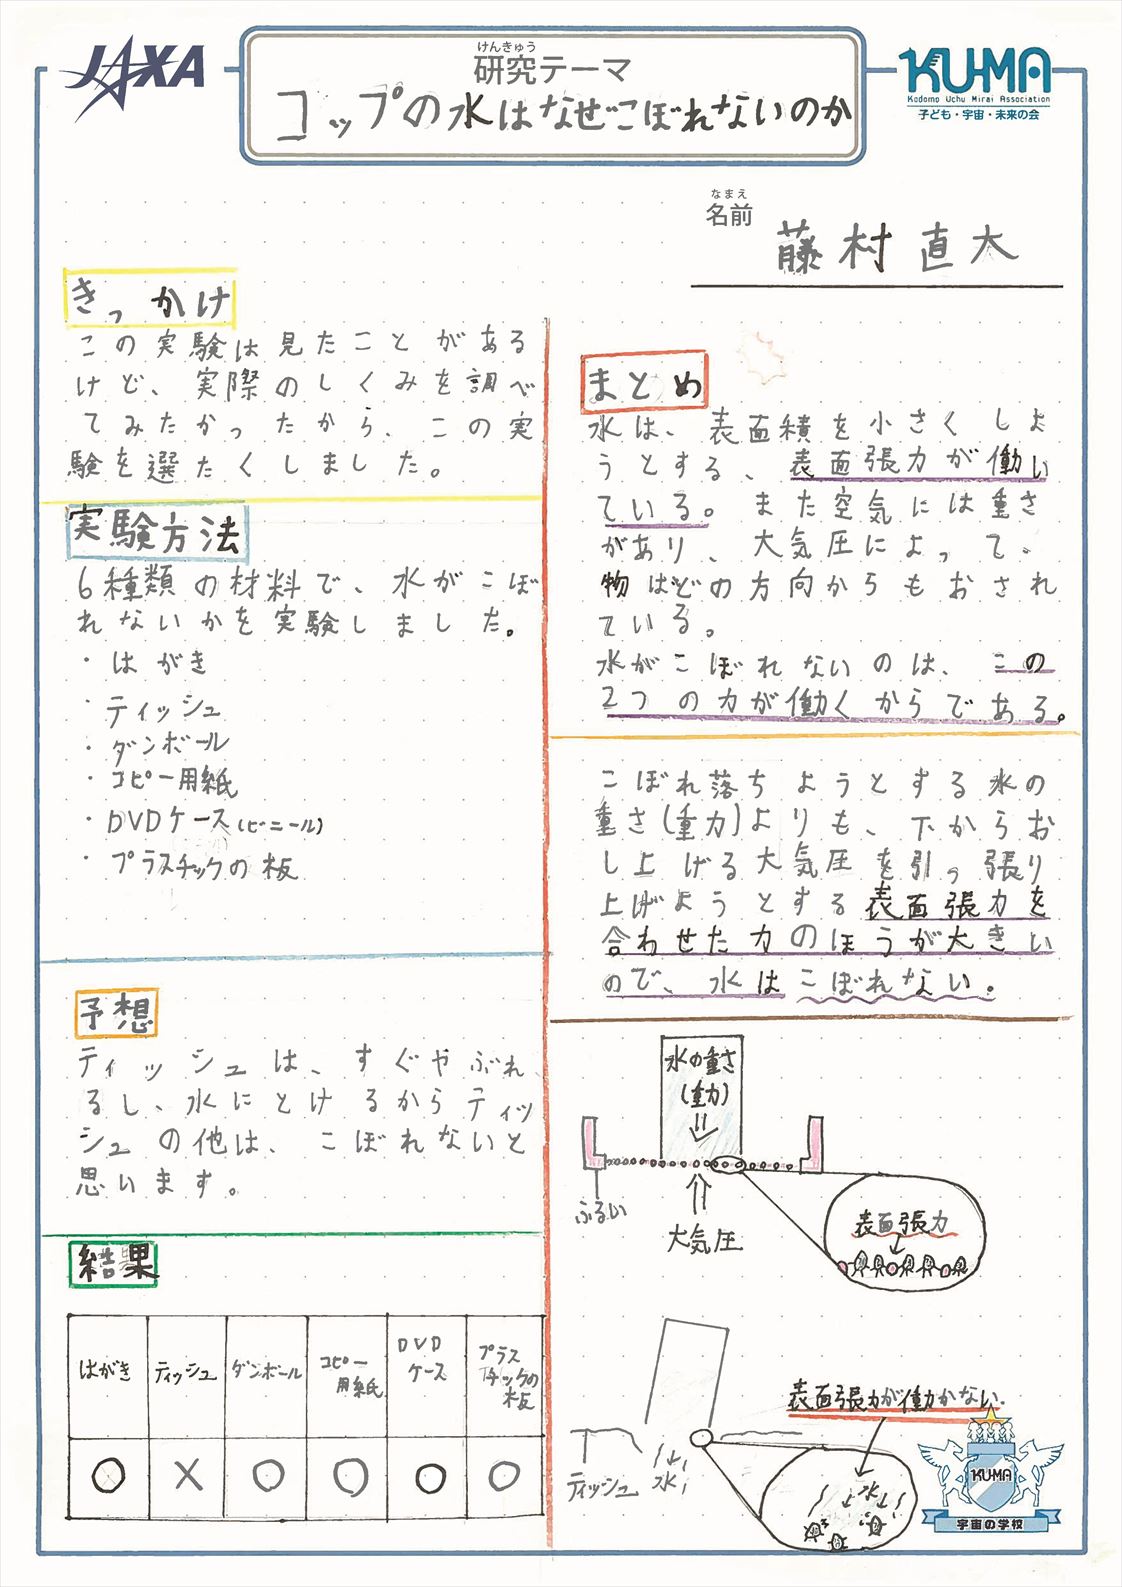 JAXA
けんきゅう
研究テーマ
コップの水はなぜこぼれないのか
KU-MA
Kodomo Uchu Mirai Association
子ども・宇宙・未来の会
なまえ
名前
藤村直大
きっかけ
この実験は見たことがある
けど、実際のしくみを調べ
てみたかったから、この実
験を選たくしました。
実験方法
6種類の材料で、水がこぼ
れないかを実験しました。
・はがき
・ティッシュ
・ダンボール
・コピー用紙
・DVDケース(ビニール)
・プラスチックの板
予想
ティッシュは、すぐやぶれ
るし、水にとけるからティッ
シュの他は、こぼれないと
思います。
結果
はがき
ティッシュ
ダンボール
コピー
用紙
DVD
ケース
プラス
チックの
板
○ × ○ ○ ○ ○
まとめ
水は、表面積を小さくしよ
うとする、表面張力が働い
ている。また空気には重さ
があり、大気圧によって。
物はどの方向からもおされ
ている。
水がこぼれないのは、この
2つの力が働くからである。
こぼれ落ちようとする水の
重さ(重力)よりも、下からお
し上げる大気圧を引っ張り
上げようとする表面張力を
合わせた力のほうが大きい
ので、水はこぼれない。
水の重さ
(重力)
ふるい
大気圧
表面張力
表面張力が働かない.
ティッシュ
水
水
KU-MA
宇宙の学校